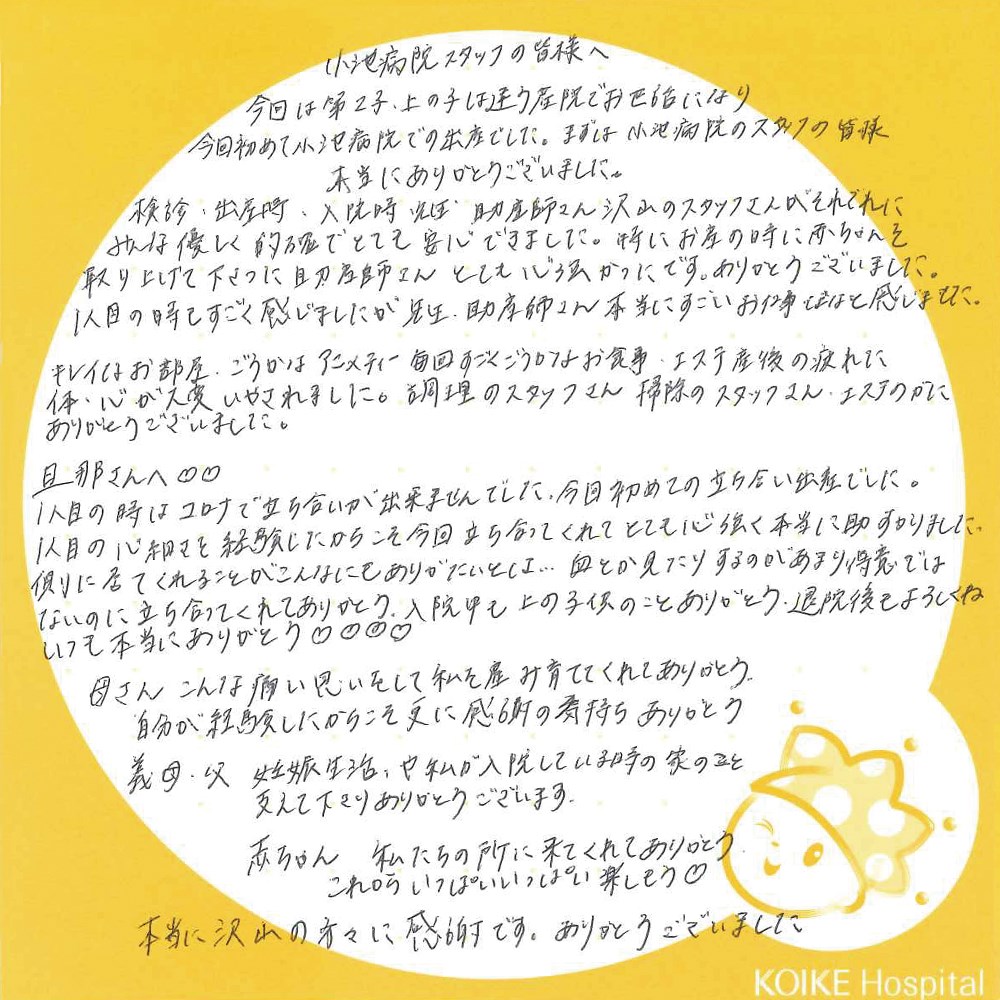 小池病院スタッフの皆様へ
今回は第2子、上の子は違う産院でお世話になり
今回初めて小池病院での出産でした。まずは小池病院のスタッフの皆様
本当にありがとうございました。
検診・出産時・入院時 先生・助産師さん沢山のスタッフさんがそれぞれに
みんな優しく的確でとても安心できました。特にお産の時に赤ちゃんを
取り上げて下さった助産師さん とても心強かったです。ありがとうございました。
1人目の時もすごく感じましたが先生・助産師さん本当にすごいお仕事だなと感じました。
キレイなお部屋・ごうかなアニメティー毎回すごくごうかなお食事・エステ産後の疲れた
体・心が大変いやされました。調理のスタッフさん 掃除のスタッフさん・エステのかた
ありがとうございました。
旦那さんへ♡♡
1人目の時はコロナで立ち合いが出来ませんでした、今回初めての立ち合い出産でした。
1人目の心細さを経験したからこそ今回立ち合ってくれてとても心強く本当に助かりました。
側に居てくれることがこんなにもありがたいとは… 血とか見たりするのがあまり得意では
ないのに立ち合ってくれてありがとう、入院中も上の子供のことありがとう、退院後もよろしくね
いつも本当にありがとう♡♡♡♡
母さん こんな痛い思いをして私を産み育ててくれてありがとう。
自分が経験したからこそ更に感謝の気持ち ありがとう
義母・父 妊娠生活、や私が入院している時の家のこと
支えて下さりありがとうございます。
赤ちゃん 私たちの所に来てくれてありがとう。
これからいっぱいいっぱい楽しもう♡
本当に沢山の方々に感謝です。ありがとうございました
KOIKE Hospital